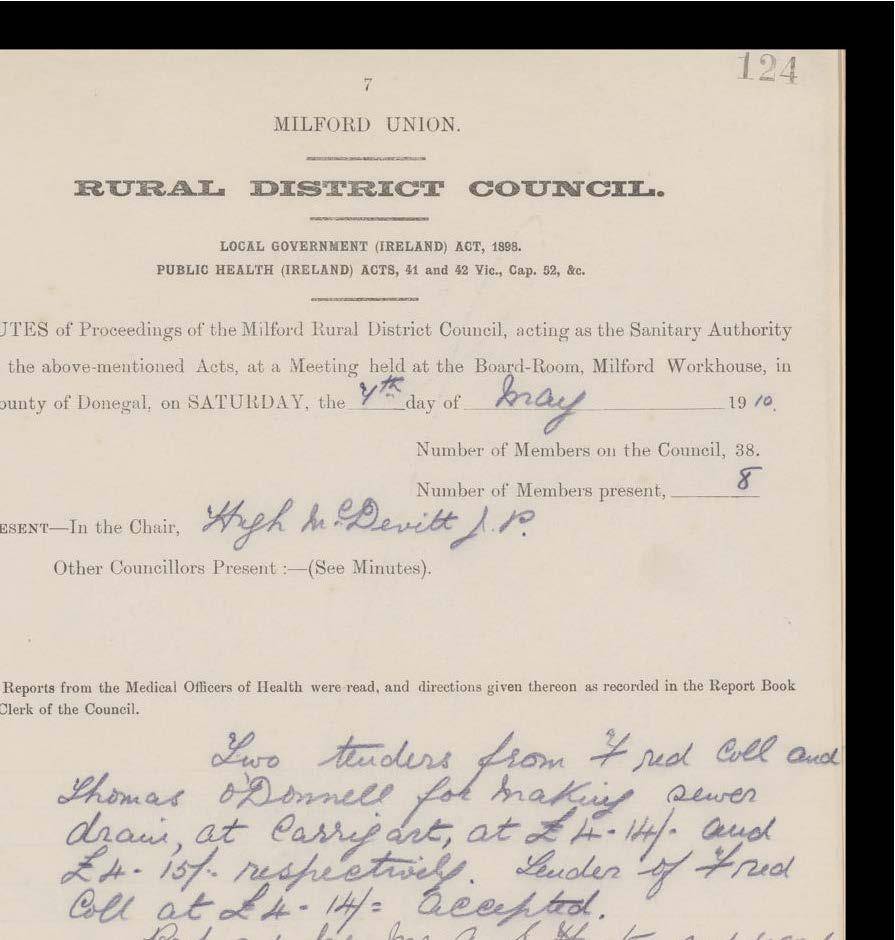 124
7
MILFORD UNION.
RURAL DISTRICT COUNCIL.
LOCAL GOVERNMENT (IRELAND) ACT, 1898.
PUBLIC HEALTH (IRELAND) ACTS, 41 and 42 Vic., Cap. 52, &c.
UTES of Proceedings of the Milford Rural District Council, acting as the Sanitary Authority
the above-mentioned Acts, at a Meeting held at the Board-Room, Milford Workhouse, in
ounty of Donegal, on SATURDAY, the 7th day of May 1910.
Number of Members on the Council, 38.
Number of Members present, 8
ESENT—In the Chair, Hugh McDevitt J.P.
Other Councillors Present :—(See Minutes).
Reports from the Medical Officers of Health were read, and directions given thereon as recorded in the Report Book
Clerk of the Council.
Two tenders from Fred Coll and
Thomas O'Donnell for making sewer
drain, at Carrigart, at £4-14/- and
£4-15/- respectively. Tender of Fred
Coll at £4-14/= accepted.